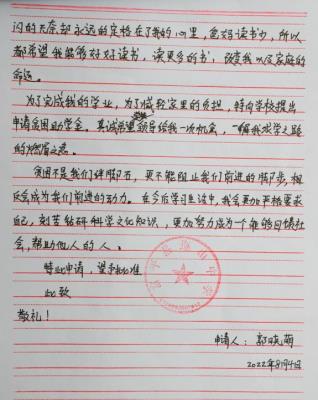 闪的无奈却永远的定格在了我的心里,爸好读书少,所以
都希望我能够好好读书,读更多的书,改变我以及家庭的
命运。
为了完成我的学业,为了减轻家里的负担,特向学校提出
申请贫困助学金。真诚希望领导给我一次机会,一解我求学之路
的燃眉之急。
贫困不是我们绊脚石,更不能阻止我们前进的脚步,相
反会成为我们前进的动力。在今后学习生活中,我会更加严格要求
自己,刻苦钻研科学文化知识,更加努力成为一个能够回馈社
会,帮助他人的人。
特此申请,望予批准
此致
敬礼!
申请人:郭晓萌
2022年8月4日